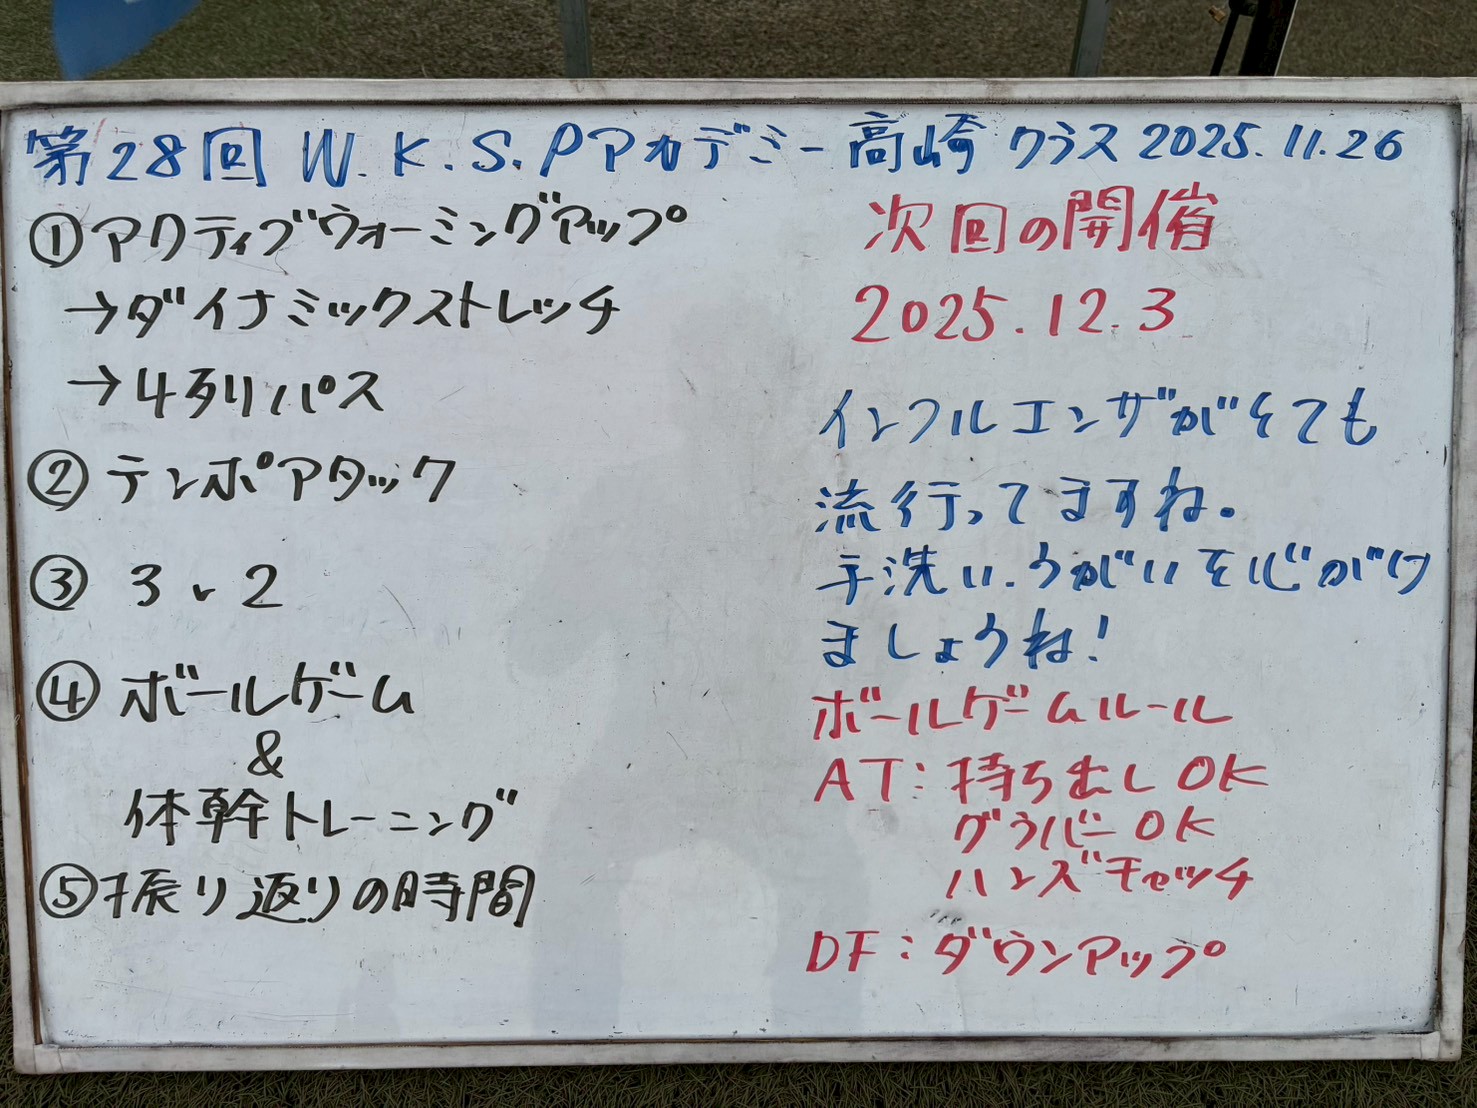 第28回 W.K.S.Pアカデミー高崎クラス2025.11.26
①アクティブウォーミングアップ
→ダイナミックストレッチ
→4列パス
②テンポアタック
③ 3v2
④ボールゲーム
&
体幹トレーニング
⑤振り返りの時間
次回の開催
2025.12.3
インフルエンザがとても
流行ってますね。
手洗い.うがいを心がけ
ましょうね!
ボールゲームルール
AT:持ち出しOK
グラバーOK
ハンズキャッチ
DF:ダウンアップ